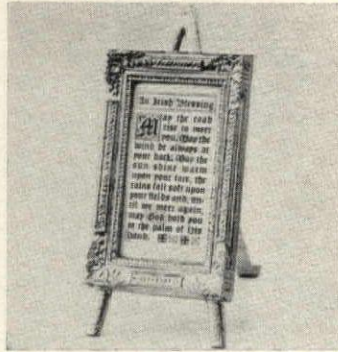 An Irish Blessing
May the road
rise to meet
you. May the
wind be always at
your back. May the
sun shine warm
upon your face, the
rains fall soft upon
your fields and, un-
til we meet again,
may God hold you
in the palm of His
hand.